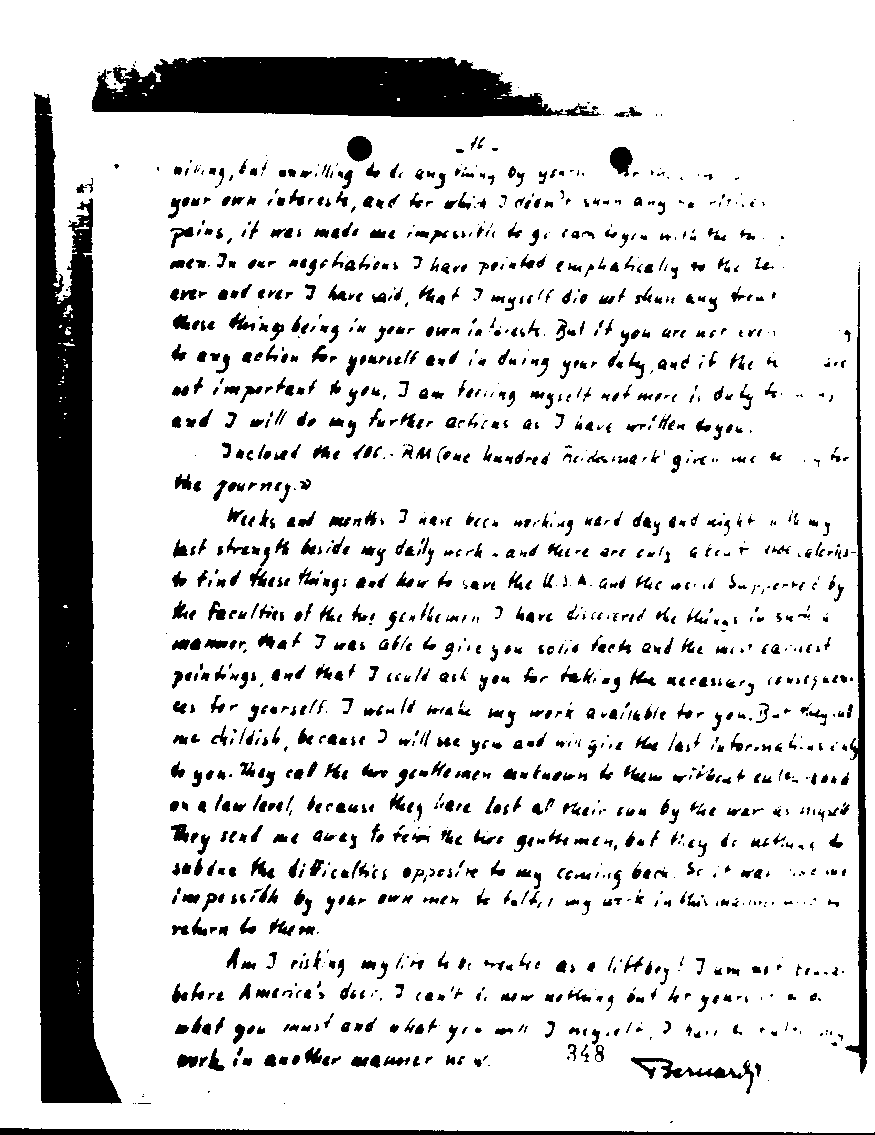 - 16 -
but unwilling to do any thing by
your own interests, and for which I didn't shun any
pains, it was made me impossible to go to you with the
men. In our negotiations I have pointed emphatically to the
ever and ever I have said, that I myself did not shun any
these things being in your own interests. But if you are not
to any action for yourself and in doing your duty, and if the are
not important to you, I am feeling myself not more in duty
and I will do my further actions as I have written to you.
Inclosed the 100.- RM (one hundred Reichsmark) given me for
the journey.»
Weeks and months I have been working hard day and night with my
last strength beside my daily work - and there are only about calories -
to find these things and how to save the U.S.A. and the world. Supported by
the faculties of the two gentlemen I have discovered the things in such a
manner, that I was able to give you solid facts and the most earnest
pointings, and that I could ask you for taking the necessary consequen-
ces for yourself. I would make my work available for you. But they call
me childish, because I will see you and will give the last informations only
to you. They call the two gentlemen unknown to them without and
on a law level, because they have lost all their own by the war as myself
They send me away to fetch the two gentlemen, but they do nothing to
subdue the difficulties opposite to my coming back. So it was me
impossible by your own men to fulfill my work in this manner and to
return to them.
Am I risking my life to be treated as a littboy! I am not
before America's door. I can't do now nothing but for
what you must and what you will I myself, I have to my
work in another manner now.
348
Bernardy